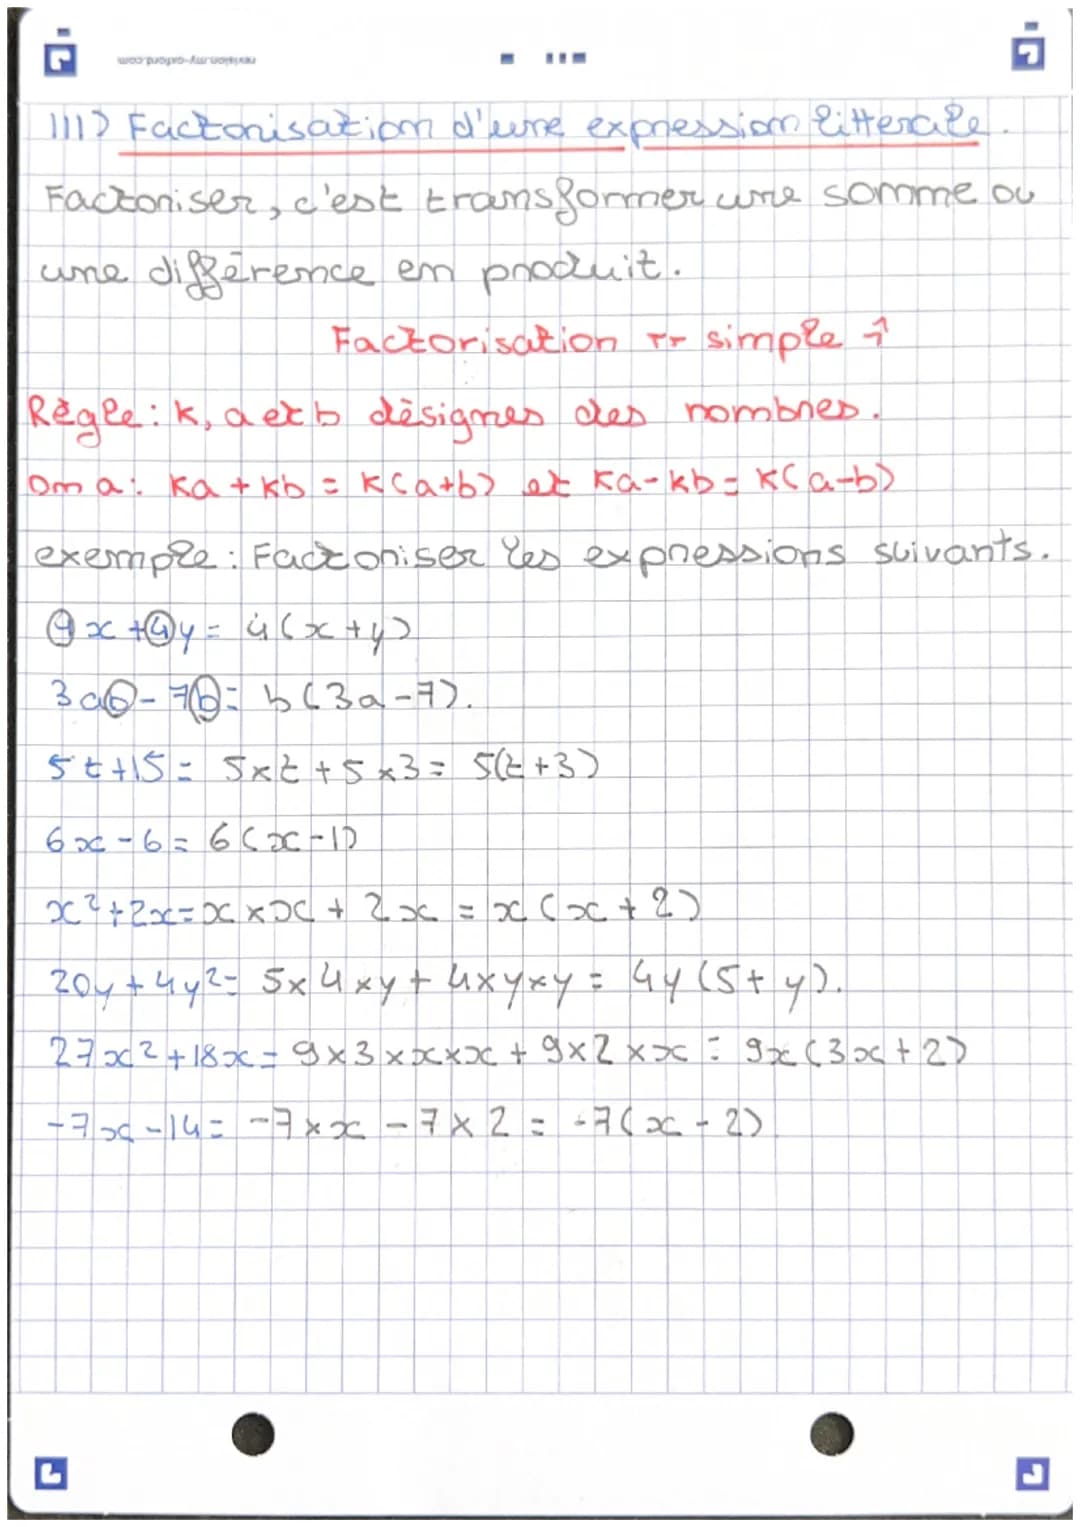 revision.my-oxford.com
III) Factorisation d'une expression litterale.
Factoriser, c'est transformer une somme ou
une différence en produit.
Factorisation rr simple ↑
Règle: K, a et b désignes des nombres.
On a: Ka + Kb = K(a+b) et Ka-kb = K(a-b)
exemple: Factoriser les expressions suivants.
4x + 4y = 4(x+y)
3ab - 7b = b(3a-7).
5t+15 = 5xt + 5x3 = 5(t+3)
6x-6 = 6(x-1)
x²+2x = x × x + 2x = x(x+2)
20y + 4y² = 5×4×y + 4×y×y = 4y(5+y).
27x²+18x = 9×3×x×x + 9×2×x = 9x(3x+2)
-7x-14 = -7×x - 7×2 = -7(x-2)